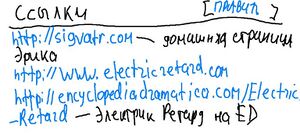 Ссылки [править]
http://sigvatr.com — домашняя страница
Эрика
http://www.electricretard.com
http://encyclopediadramatica.com/Electric
-Retard — Электрик Ретард на ED